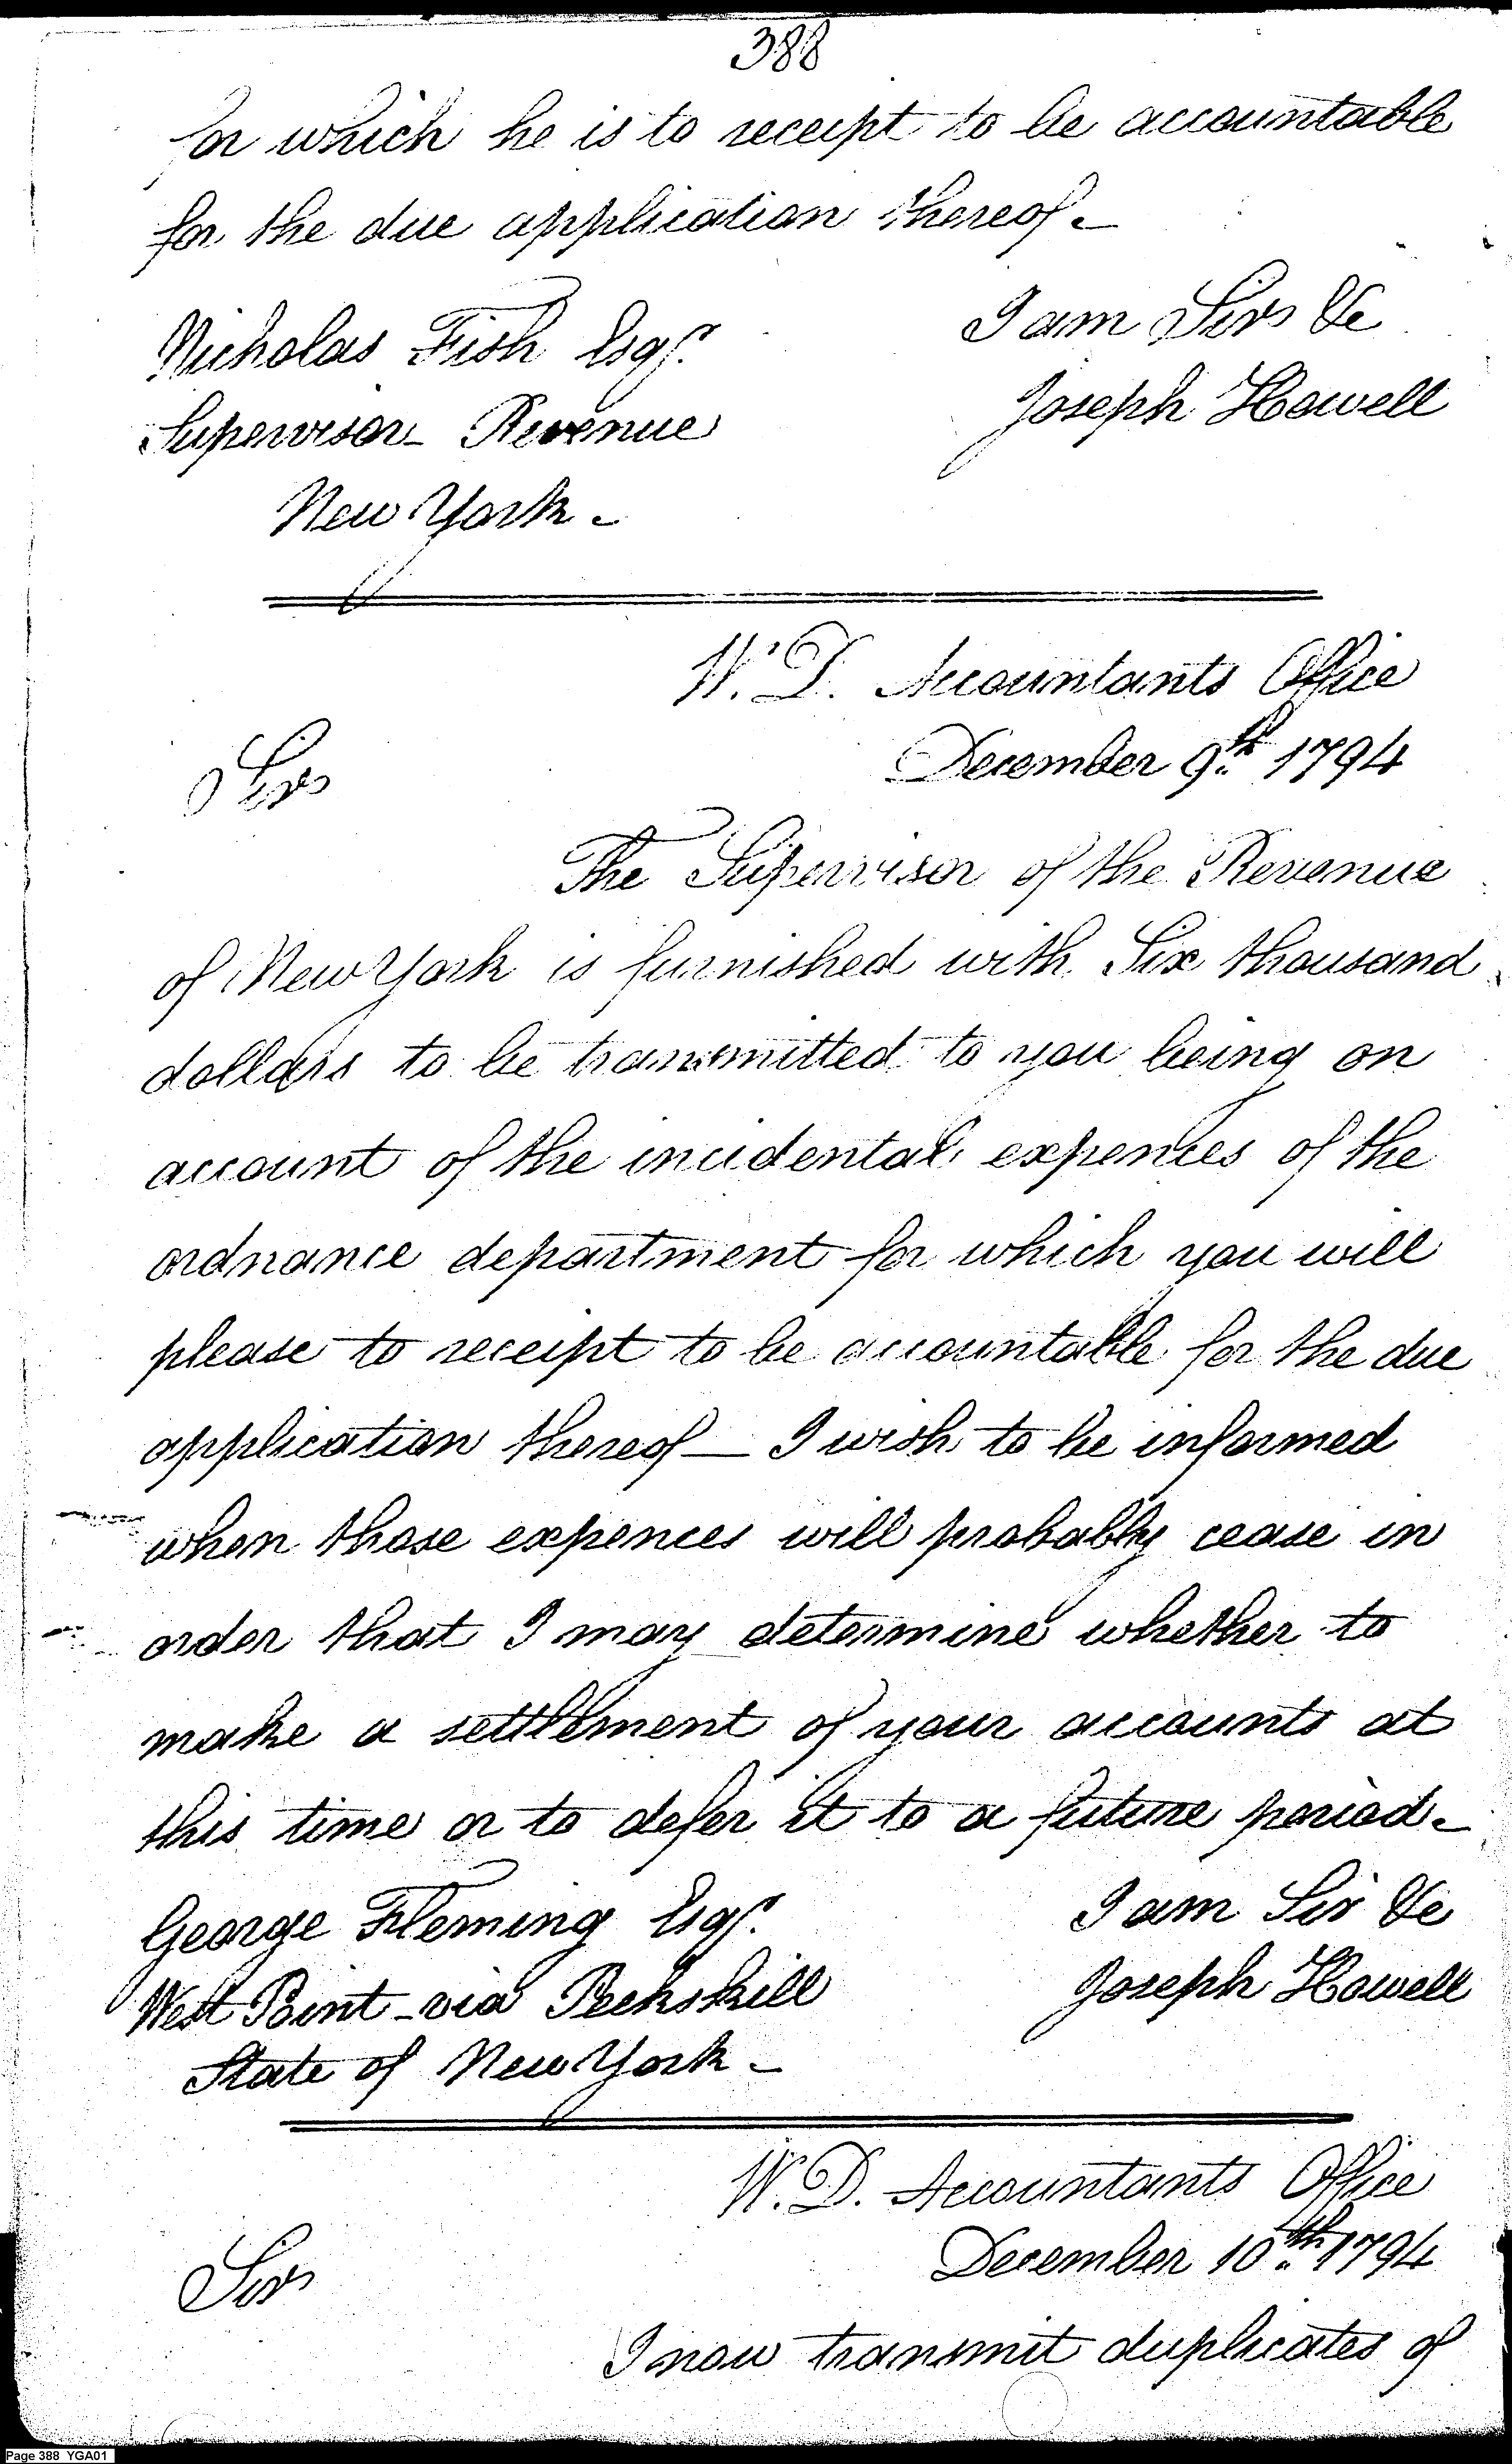 388
for which he is to receipt to be accountable
for the due application thereof -
I am Sir &c
Nicholas Fish Esqr.
Joseph Howell
Supervisor Revenue
New York -
W. D. Accountants Office
December 9th. 1794
Sir
The Supervisor of the Revenue
of New York is furnished with Six thousand
dollars to be transmitted to you being on
account of the incidental expences of the
ordnance department for which you will
please to receipt to be accountable for the due
application thereof — I wish to be informed
when those expences will probably cease in
order that I may determine whether to
make a settlement of your accounts at
this time or to defer it to a future period -
I am Sir &c
George Fleming Esqr.
Joseph Howell
West Point - via Peekskill
State of New York -
W. D. Accountants Office
December 10th. 1794
Sir
I now transmit duplicates of
Page 388 YGA01